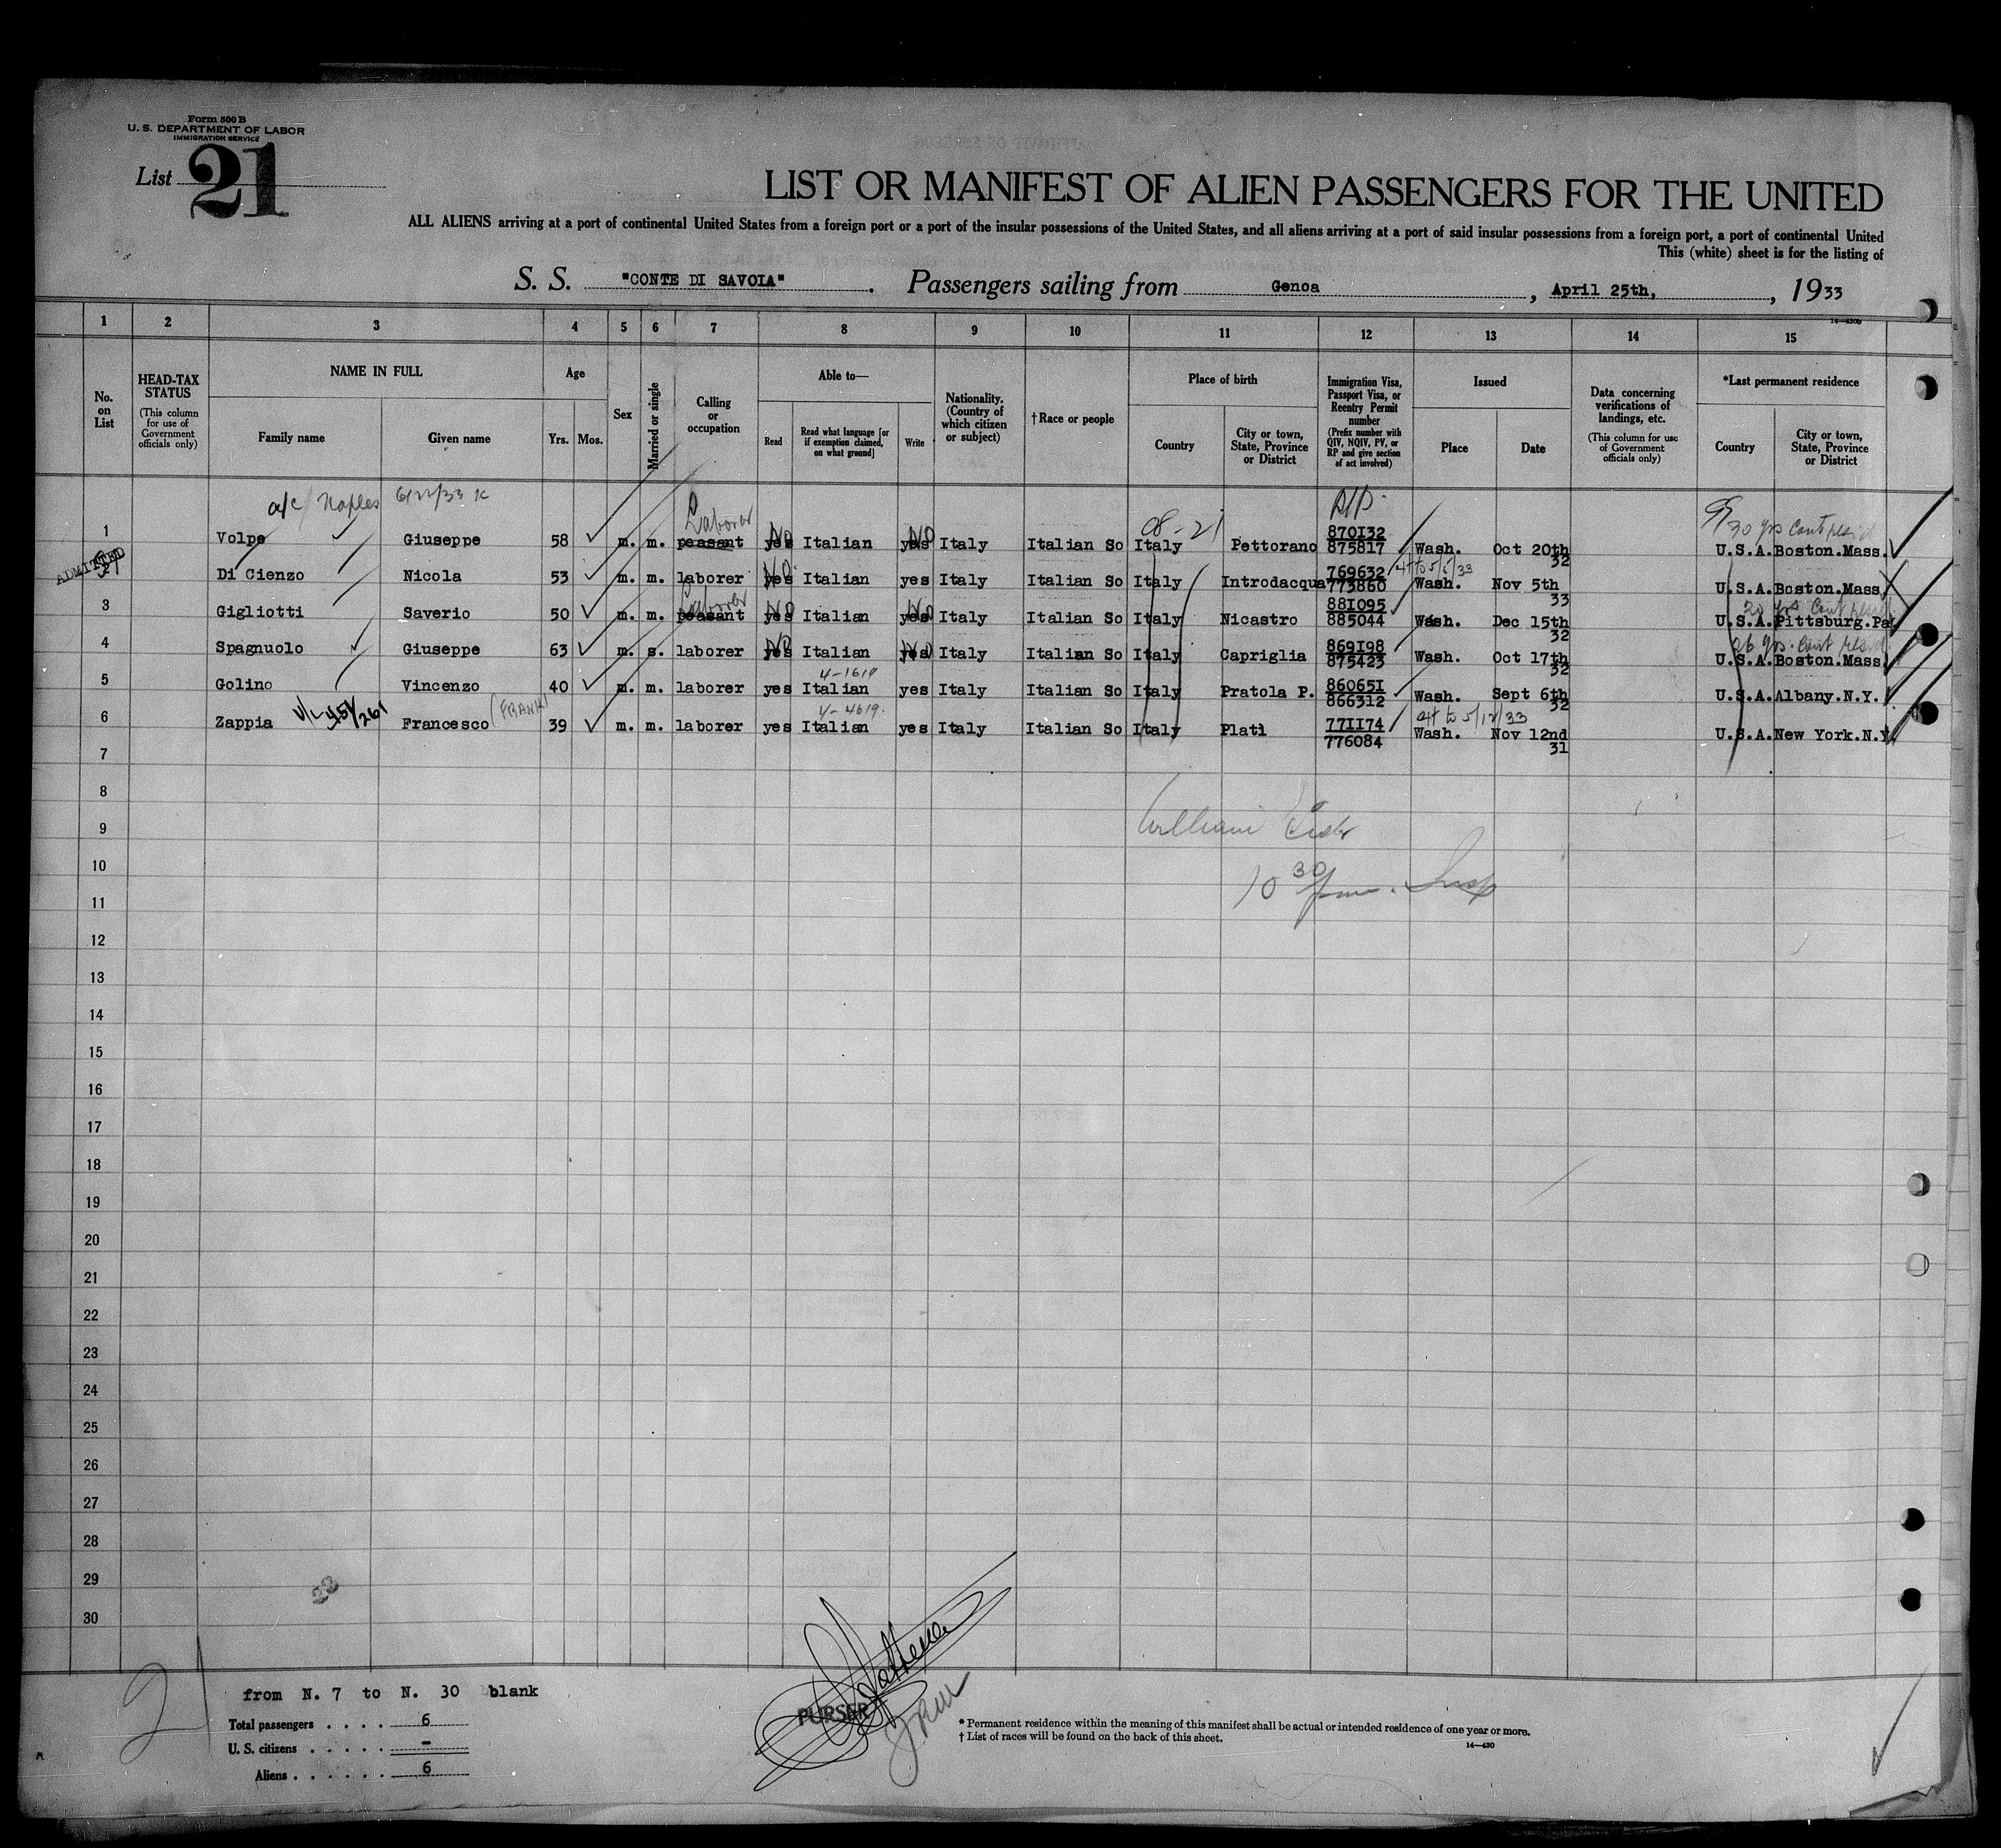 Form 500 B
U. S. DEPARTMENT OF LABOR
IMMIGRATION SERVICE
List 21
LIST OR MANIFEST OF ALIEN PASSENGERS FOR THE UNITED
ALL ALIENS arriving at a port of continental United States from a foreign port or a port of the insular possessions of the United States, and all aliens arriving at a port of said insular possessions from a foreign port, a port of continental United
This (white) sheet is for the listing of
S. S. "CONTE DI SAVOIA". Passengers sailing from Genoa, April 25th, , 1933
14—430b
1 2 3 4 5 6 7 8 9 10 11 12 13 14 15
No. on List
HEAD-TAX STATUS (This column for use of Government officials only)
NAME IN FULL
Family name
Given name
Age
Yrs. Mos.
Sex
Married or single
Calling or occupation
Able to—
Read
Read what language [or if exemption claimed, on what ground]
Write
Nationality. (Country of which citizen or subject)
†Race or people
Place of birth
Country
City or town, State, Province or District
Immigration Visa, Passport Visa, or Reentry Permit number (Prefix number with QIV, NQIV, PV, or RP and give section of act involved)
Issued
Place
Date
Data concerning verifications of landings, etc. (This column for use of Government officials only)
*Last permanent residence
Country
City or town, State, Province or District
a/c Naples 6/22/33 K
Laborer R/P. 08-21 30 yrs Cont resid
1 Volpe Giuseppe 58 m. m. peasant yes No Italian yes No Italy Italian So Italy Pettorano 870132 875817 Wash. Oct 20th 32 U.S.A. Boston.Mass.
ADMITTED
Di Cienzo Nicola 53 m. m. laborer yes No Italian yes Italy Italian So Italy Introdacqua 769632 773860 Wash. Nov 5th 33 U.S.A. Boston.Mass.
Laborer 20 yrs Cont resid
3 Gigliotti Saverio 50 m. m. peasant yes No Italian yes No Italy Italian So Italy Nicastro 881095 885044 Wash. Dec 15th 32 U.S.A. Pittsburg.Pa.
26 yrs. Cont resid.
4 Spagnuolo Giuseppe 63 m. s. laborer yes No Italian yes No Italy Italian So Italy Capriglia 869198 875423 Wash. Oct 17th 32 U.S.A. Boston.Mass.
4-1619
5 Golino Vincenzo 40 m. m. laborer yes Italian yes Italy Italian So Italy Pratola P. 860651 866312 Wash. Sept 6th 32 U.S.A. Albany.N.Y.
4-4619.
6 Zappia Francesco (FRANK) 39 m. m. laborer yes Italian yes Italy Italian So Italy Plati 771174 776084 Wash. Nov 12nd 31 U.S.A. New York.N.Y.
7
8
9 William
10
10 30 pm. Insp
11
12
13
14
15
16
17
18
19
20
21
22
23
24
25
26
27
28
29
30
21
from N. 7 to N. 30 blank
Total passengers . . . . 6
U. S. citizens . . . . . -
Aliens . . . . . . 6
PURSER
* Permanent residence within the meaning of this manifest shall be actual or intended residence of one year or more.
† List of races will be found on the back of this sheet.
14—430